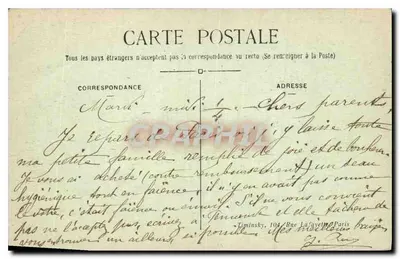 CARTE POSTALE
Tous les pays étrangers n'acceptent pas la correspondance au recto (Se renseigner à la Poste)
CORRESPONDANCE
ADRESSE
Mardi midi 1/4. Chers parents,
Je repars de j'y laisse toute
ma petite famille remplie de joie et de bonheur
Je vous ai acheté (contre remboursement) un seau
hygiénique tout en faïence, il n'y en avait pas comme
le vôtre, c'était faïence ou émail. S'il ne vous convient
pas ne l'acceptez pas, écrivez à et elle tâchera de
vous trouver un ailleurs si possible. Mes meilleurs baisers
Rue Lafayette Paris